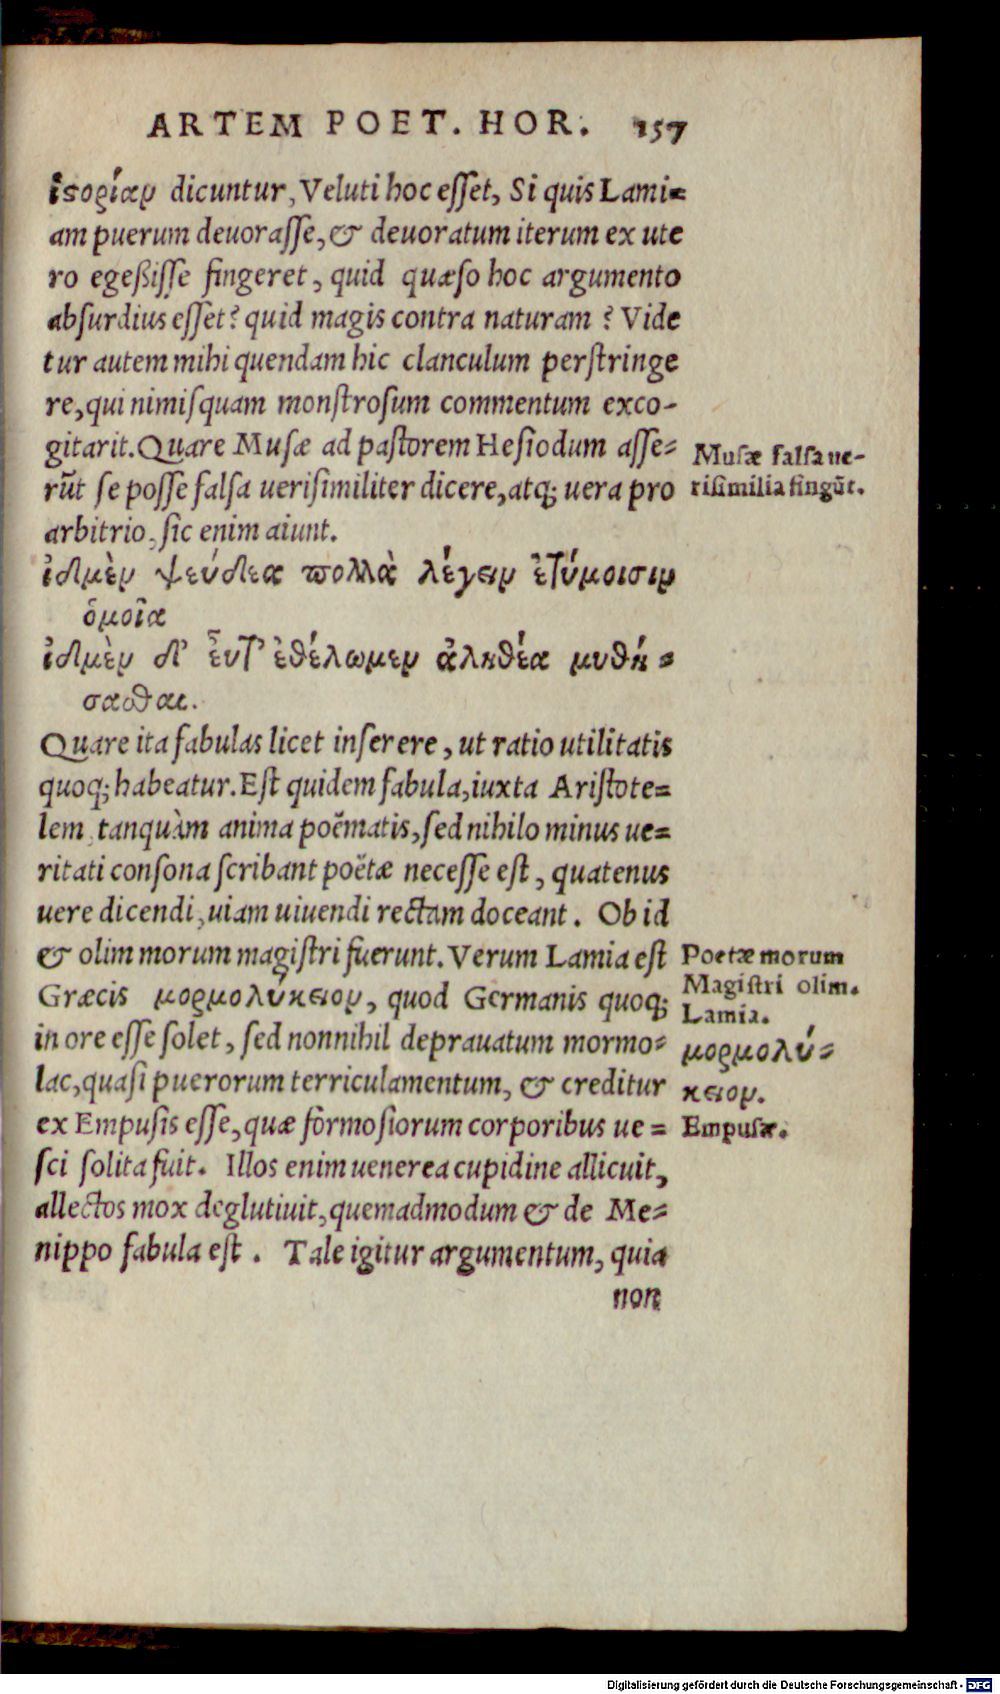 ARTEM POET. HOR. 157
ἱϛορίαν dicuntur, Veluti hoc esset, Si quis Lami=
am puerum deuorasse, & deuoratum iterum ex ute
ro egeßisse fingeret, quid quæso hoc argumento
absurdius esset? quid magis contra naturam? Vide
tur autem mihi quendam hic clanculum perstringe
re, qui nimisquam monstrosum commentum exco-
gitarit. Quare Musæ ad pastorem Hesiodum asse=
rūt se posse falsa uerisimiliter dicere, atq; uera pro
arbitrio, sic enim aiunt.
Musæ falsa ue-
risimilia fingūt.
ἰδμὲν ψεύδεα πολλὰ λέγειν ἐτύμοισιν
ὁμοῖα
ἰδμὲν δ' εὖτ' ἐθέλωμεν ἀληθέα μυθή=
σασθαι.
Quare ita fabulas licet inserere, ut ratio utilitatis
quoq; habeatur. Est quidem fabula, iuxta Aristote=
lem, tanquàm anima poëmatis, sed nihilo minus ue=
ritati consona scribant poëtæ necesse est, quatenus
uere dicendi, uiam uiuendi rectam doceant. Ob id
& olim morum magistri fuerunt. Verum Lamia est
Græcis μορμολύκειον, quod Germanis quoq;
in ore esse solet, sed nonnihil deprauatum mormo=
lac, quasi puerorum terriculamentum, & creditur
ex Empusis esse, quæ formosiorum corporibus ue=
sci solita fuit. Illos enim uenerea cupidine allicuit,
allectos mox deglutiuit, quemadmodum & de Me=
nippo fabula est. Tale igitur argumentum, quia
non
Poetæ morum
Magistri olim.
Lamia.
μορμολύ=
κειον.
Empusæ.
Digitalisierung gefördert durch die Deutsche Forschungsgemeinschaft - DFG